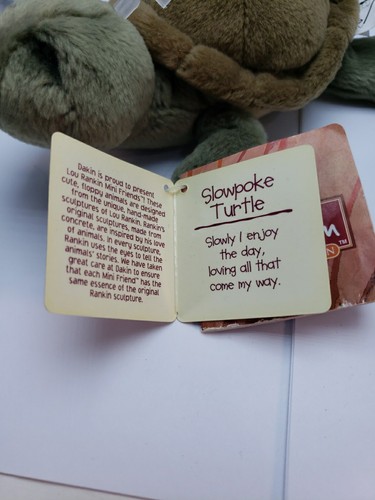 Dakin is proud to present
Lou Rankin Mini Friends™! These
cute, floppy animals are designed
from the unique hand-made
sculptures of Lou Rankin. Rankin's
original sculptures, made from
concrete, are inspired by his love
of animals. In every sculpture,
Rankin uses the eyes to tell the
animals' stories. We have taken
great care at Dakin to ensure
that each Mini Friend™ has the
same essence of the original
Rankin sculpture.
Slowpoke
Turtle
Slowly I enjoy
the day,
loving all that
come my way.
TM